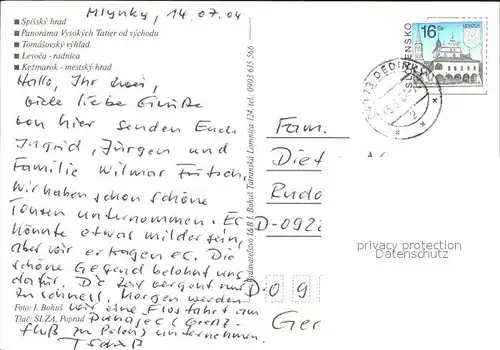 Mlynky, 14.07.04
Spišský hrad
Panoráma Vysokých Tatier od východu
Tomášovský výhľad
Levoča - radnica
Kežmarok - mestský hrad
Hallo, Ihr zwei,
viele liebe Grüße
von hier senden Euch
Ingrid, Jürgen und
Familie Wilmar Fritsch.
Wir haben schon schöne
Touren unternommen. Es
könnte etwas milder sein,
aber wir ertragen es. Die
schöne Gegend belohnt uns
dafür. Die Zeit vergeht nur
zu schnell. Morgen werden
wir eine Flosfahrt am
Dunajec (Grenz-
fluß zu Polen) unternehmen.
Tschüß
Foto: I. Bohuš
Tlač: SLZA, Poprad
Vydavateľstvo I&B I. Bohuš Tatranská Lomnica 124, tel. 0903 615 566
16 Sk
SLOVENSKO
DEDINKY
Fam.
Diet
Rudo
D-092
D-09
Ger
protection privacy
Datenschutz